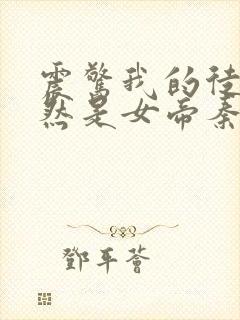 震惊我的徒
然是女帝秦
鄧平薈